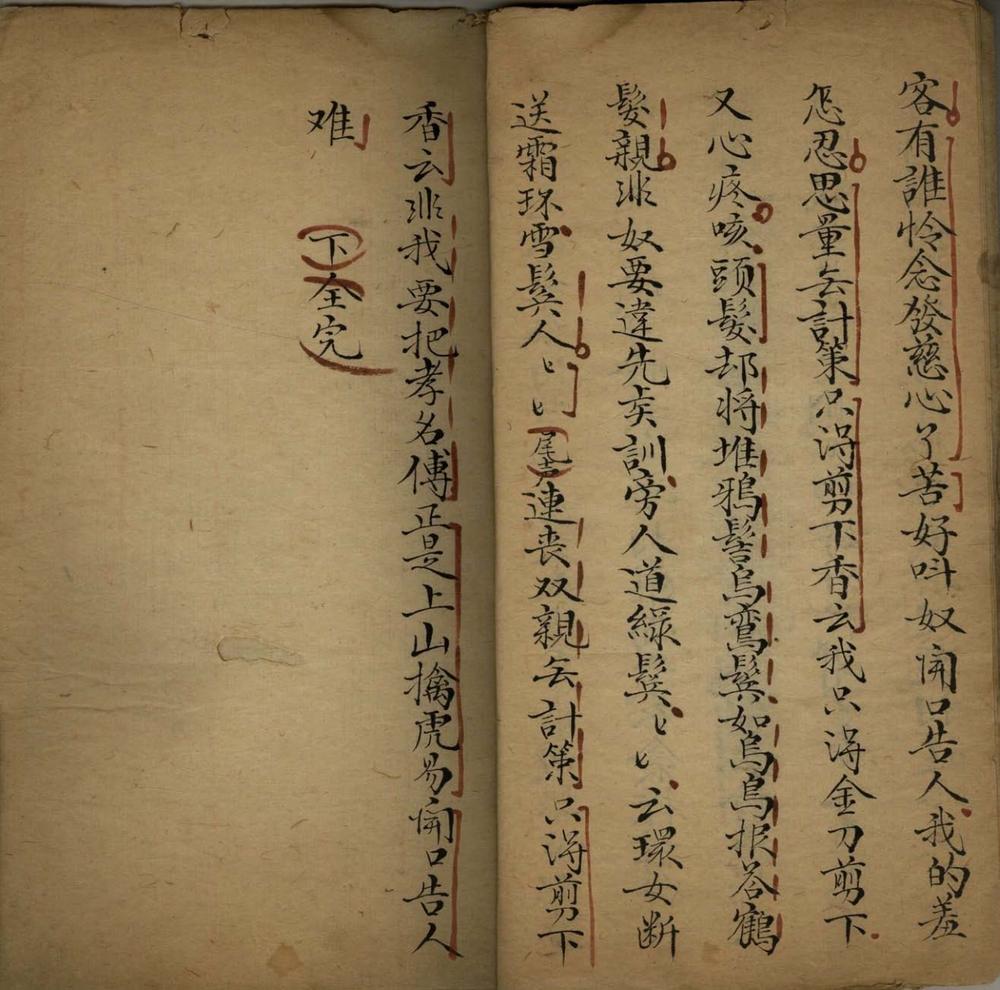 客有誰怜念發慈心了苦好呌奴開口告人我的羞
怎忍思量無計策只淂剪下香云我只淂金刀剪下
又心疼咳頭髮却将堆鴉髻烏鸞鬂如烏烏报荅鶴
髮親非奴要違先矣訓旁人道緑鬂匕匕云環女断
送霜环雪鬂人匕匕尾声連丧双親無計策只淂剪下
香云非我要把孝名傳正是上山擒虎易開口告人
难
下全完